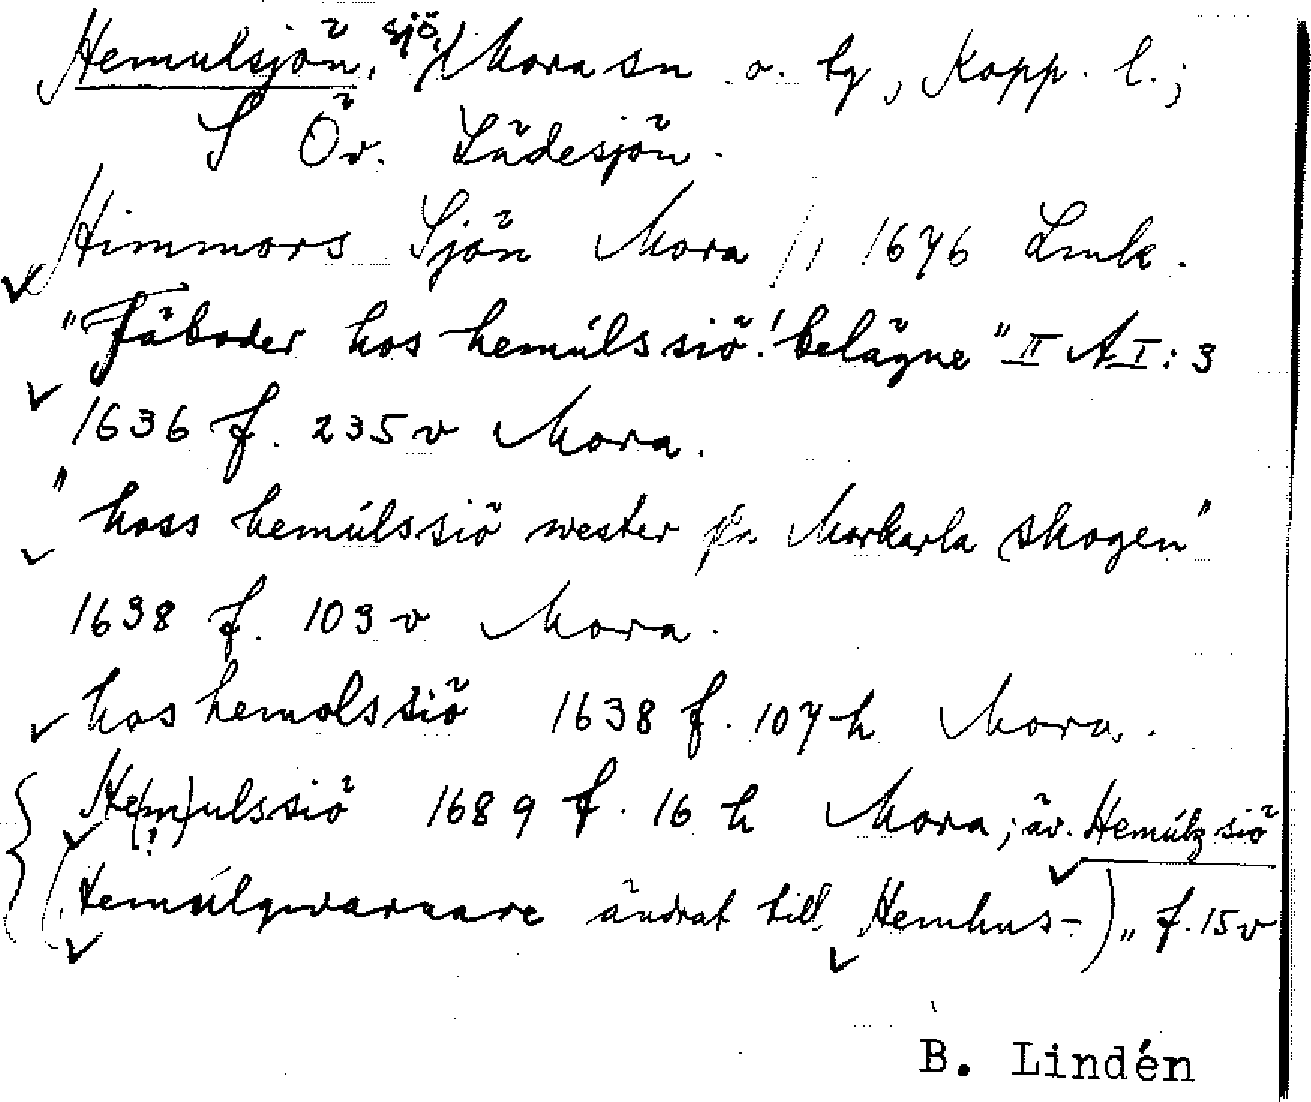 Hemulsjön, sjö, Mora sn o. tg, Kopp. l.;
S Öv. Lädesjön.
Himmors Sjön Mora // 1676 Lmk.
"Fäboder hos hemúlssiö! belägne" II A I: 3
1636 f. 235 v Mora.
"hoss hemúlssiö wester på Morkarla skogen"
1638 f. 103 v Mora.
hos hemolssiö 1638 f. 107 h Mora.
He(m)ulssiö 1689 f. 16 h Mora; äv. Hemúlz siö
(!)
(Hemúlqwarnare ändrat till Hemhus-) " f. 15 v
B. Lindén